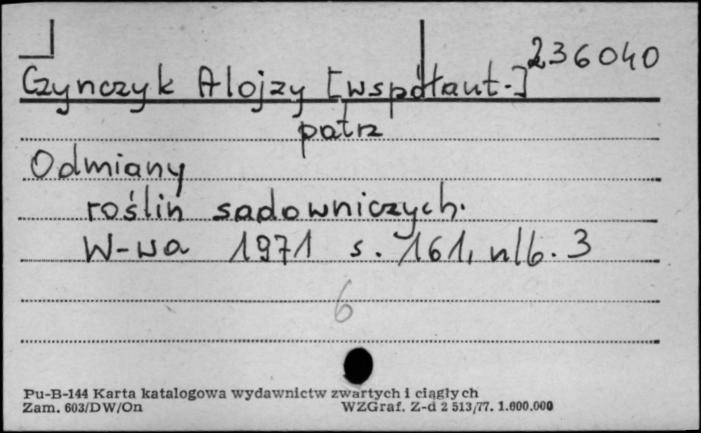 236040
Czynczyk Alojzy [współaut.]
patrz
Odmiany
roślin sadowniczych.
W-wa 1971 s. 161, nlb. 3
6
Pu-B-144 Karta katalogowa wydawnictw zwartych i ciągłych
Zam. 603/DW/On WZGraf. Z-d 2 513/77. 1.000.000